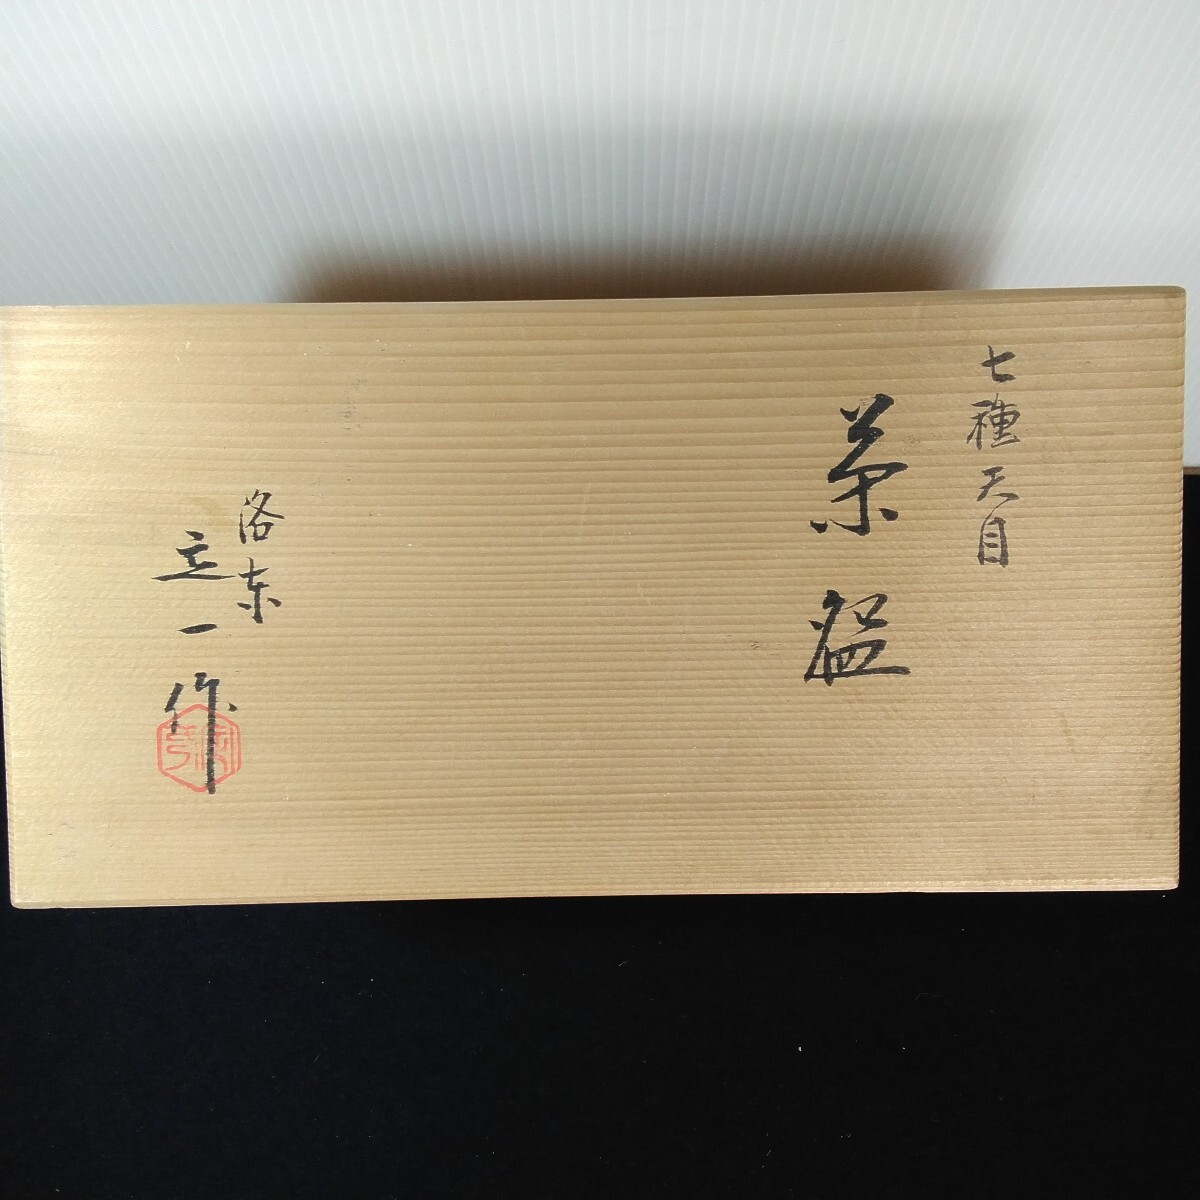 七種天目
茶盌
洛東
立一作